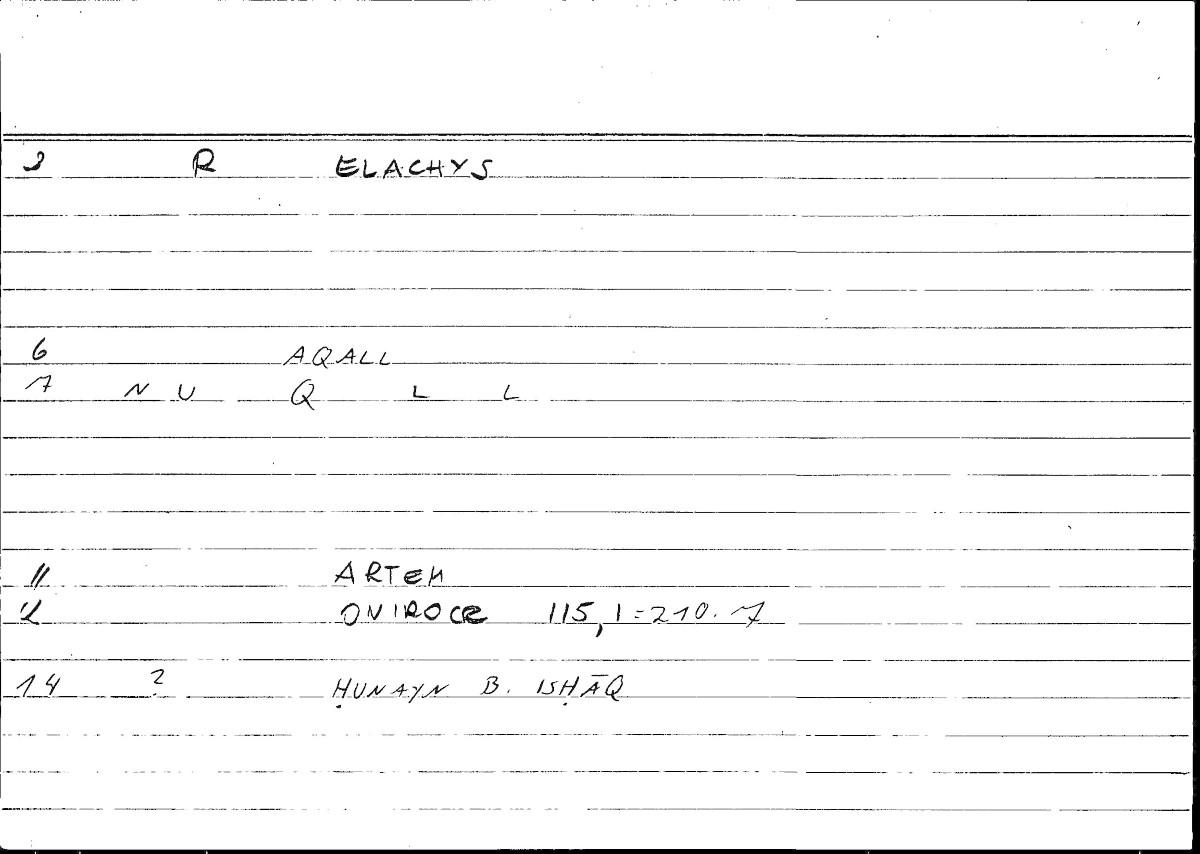 2 R ELACHYS
6 AQALL
7 N U Q L L
11 ARTEM
12 ONIROCR 115,1=210.7
14 ? ḤUNAYN B. ISḤĀQ